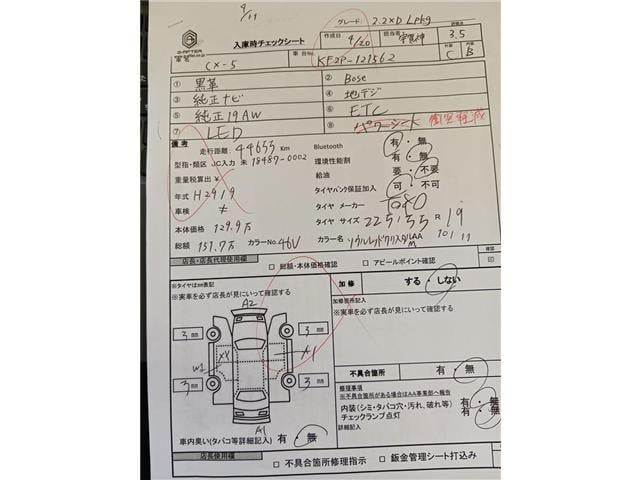 4/11
グレード: 2.2XD Lpkg
G-AFTER
入庫時チェックシート
作成日 4/20 担当者 評価点 3.5
車名 CX-5 車台No. KF2P-121562 外装 C 内装 B
① 黒革 ② Bose
③ 純正ナビ ④ 地デジ
⑤ 純正19AW ⑥ ETC
⑦ LED ⑧ パワーシート 衝突軽減
備考
走行距離: 44655 Km Bluetooth 有・無
型指・類区 JC入力 未 18487-0002 環境性能割 有・無
重量税算出 ¥ 給油 要・不要
年式 H29/9 タイヤパンク保証加入 可・不可
車検 ナ タイヤ メーカー TOYO
本体価格 129.9万 タイヤ サイズ 225/55 R 19
総額 151.9万 カラーNo. 46V カラー名 ソウルレッドクリスタルM AA 101 11
店長・店長代理使用欄 □ 総額・本体価格確認 □ アピールポイント確認 確認 印
※タイヤは㎜表記
※実車を必ず店長が見にいって確認する
加修 する・しない
加修箇所記入
※実車を必ず店長が見にいって確認する
A2
3 mm 3 mm
W2 XX A1
3 mm 3 mm
A1
不具合箇所 有・無
修理事項
※不具合箇所がある場合はAA事業部へ報告
内装(シミ・タバコ穴・汚れ、破れ等) 有・無
チェックランプ点灯 有・無
詳細記入
車内臭い(タバコ等詳細記入) 有・無
店長使用欄 □ 不具合箇所修理指示 □ 鈑金管理シート打込み